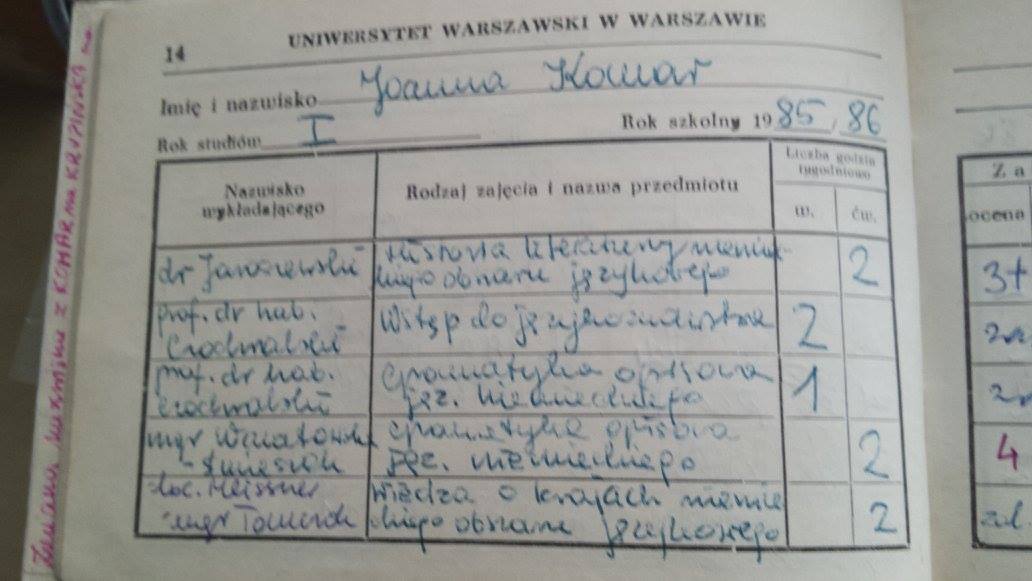 14
UNIWERSYTET WARSZAWSKI W WARSZAWIE
Imię i nazwisko Joanna Komar
Rok studiów I Rok szkolny 1985/86
Nazwisko wykładającego
Rodzaj zajęcia i nazwa przedmiotu
Liczba godzin tygodniowo
w. ćw.
dr Jaroszewski
Historia literatury niemiec-
kiego obszaru językowego
2
prof. dr hab.
Czochralski
Wstęp do językoznawstwa
2
prof. dr hab.
Czochralski
Gramatyka opisowa
jęz. niemieckiego
1
mgr
Gramatyka opisowa
jęz. niemieckiego
2
doc. Meissner
mgr
Wiedza o krajach niemie
ckiego obszaru językowego
2
Za
ocena
3+
4
zal
Zmiana nazwiska z KOMAR na